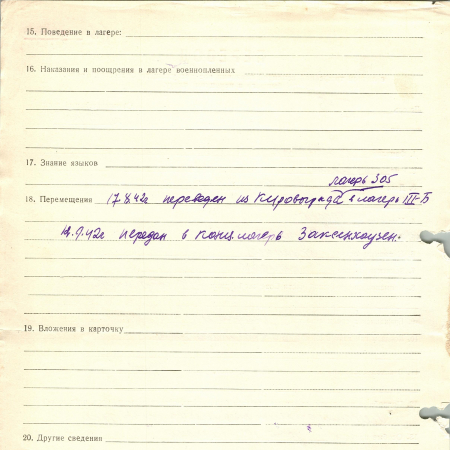 15. Поведение в лагере:
16. Наказания и поощрения в лагере военнопленных
17. Знание языков
лагерь 305
18. Перемещения 17.8.42г переведен из Кировограда в лагерь III-Б
12.9.42г передан в конц.лагерь Заксенхаузен.
19. Вложения в карточку
20. Другие сведения